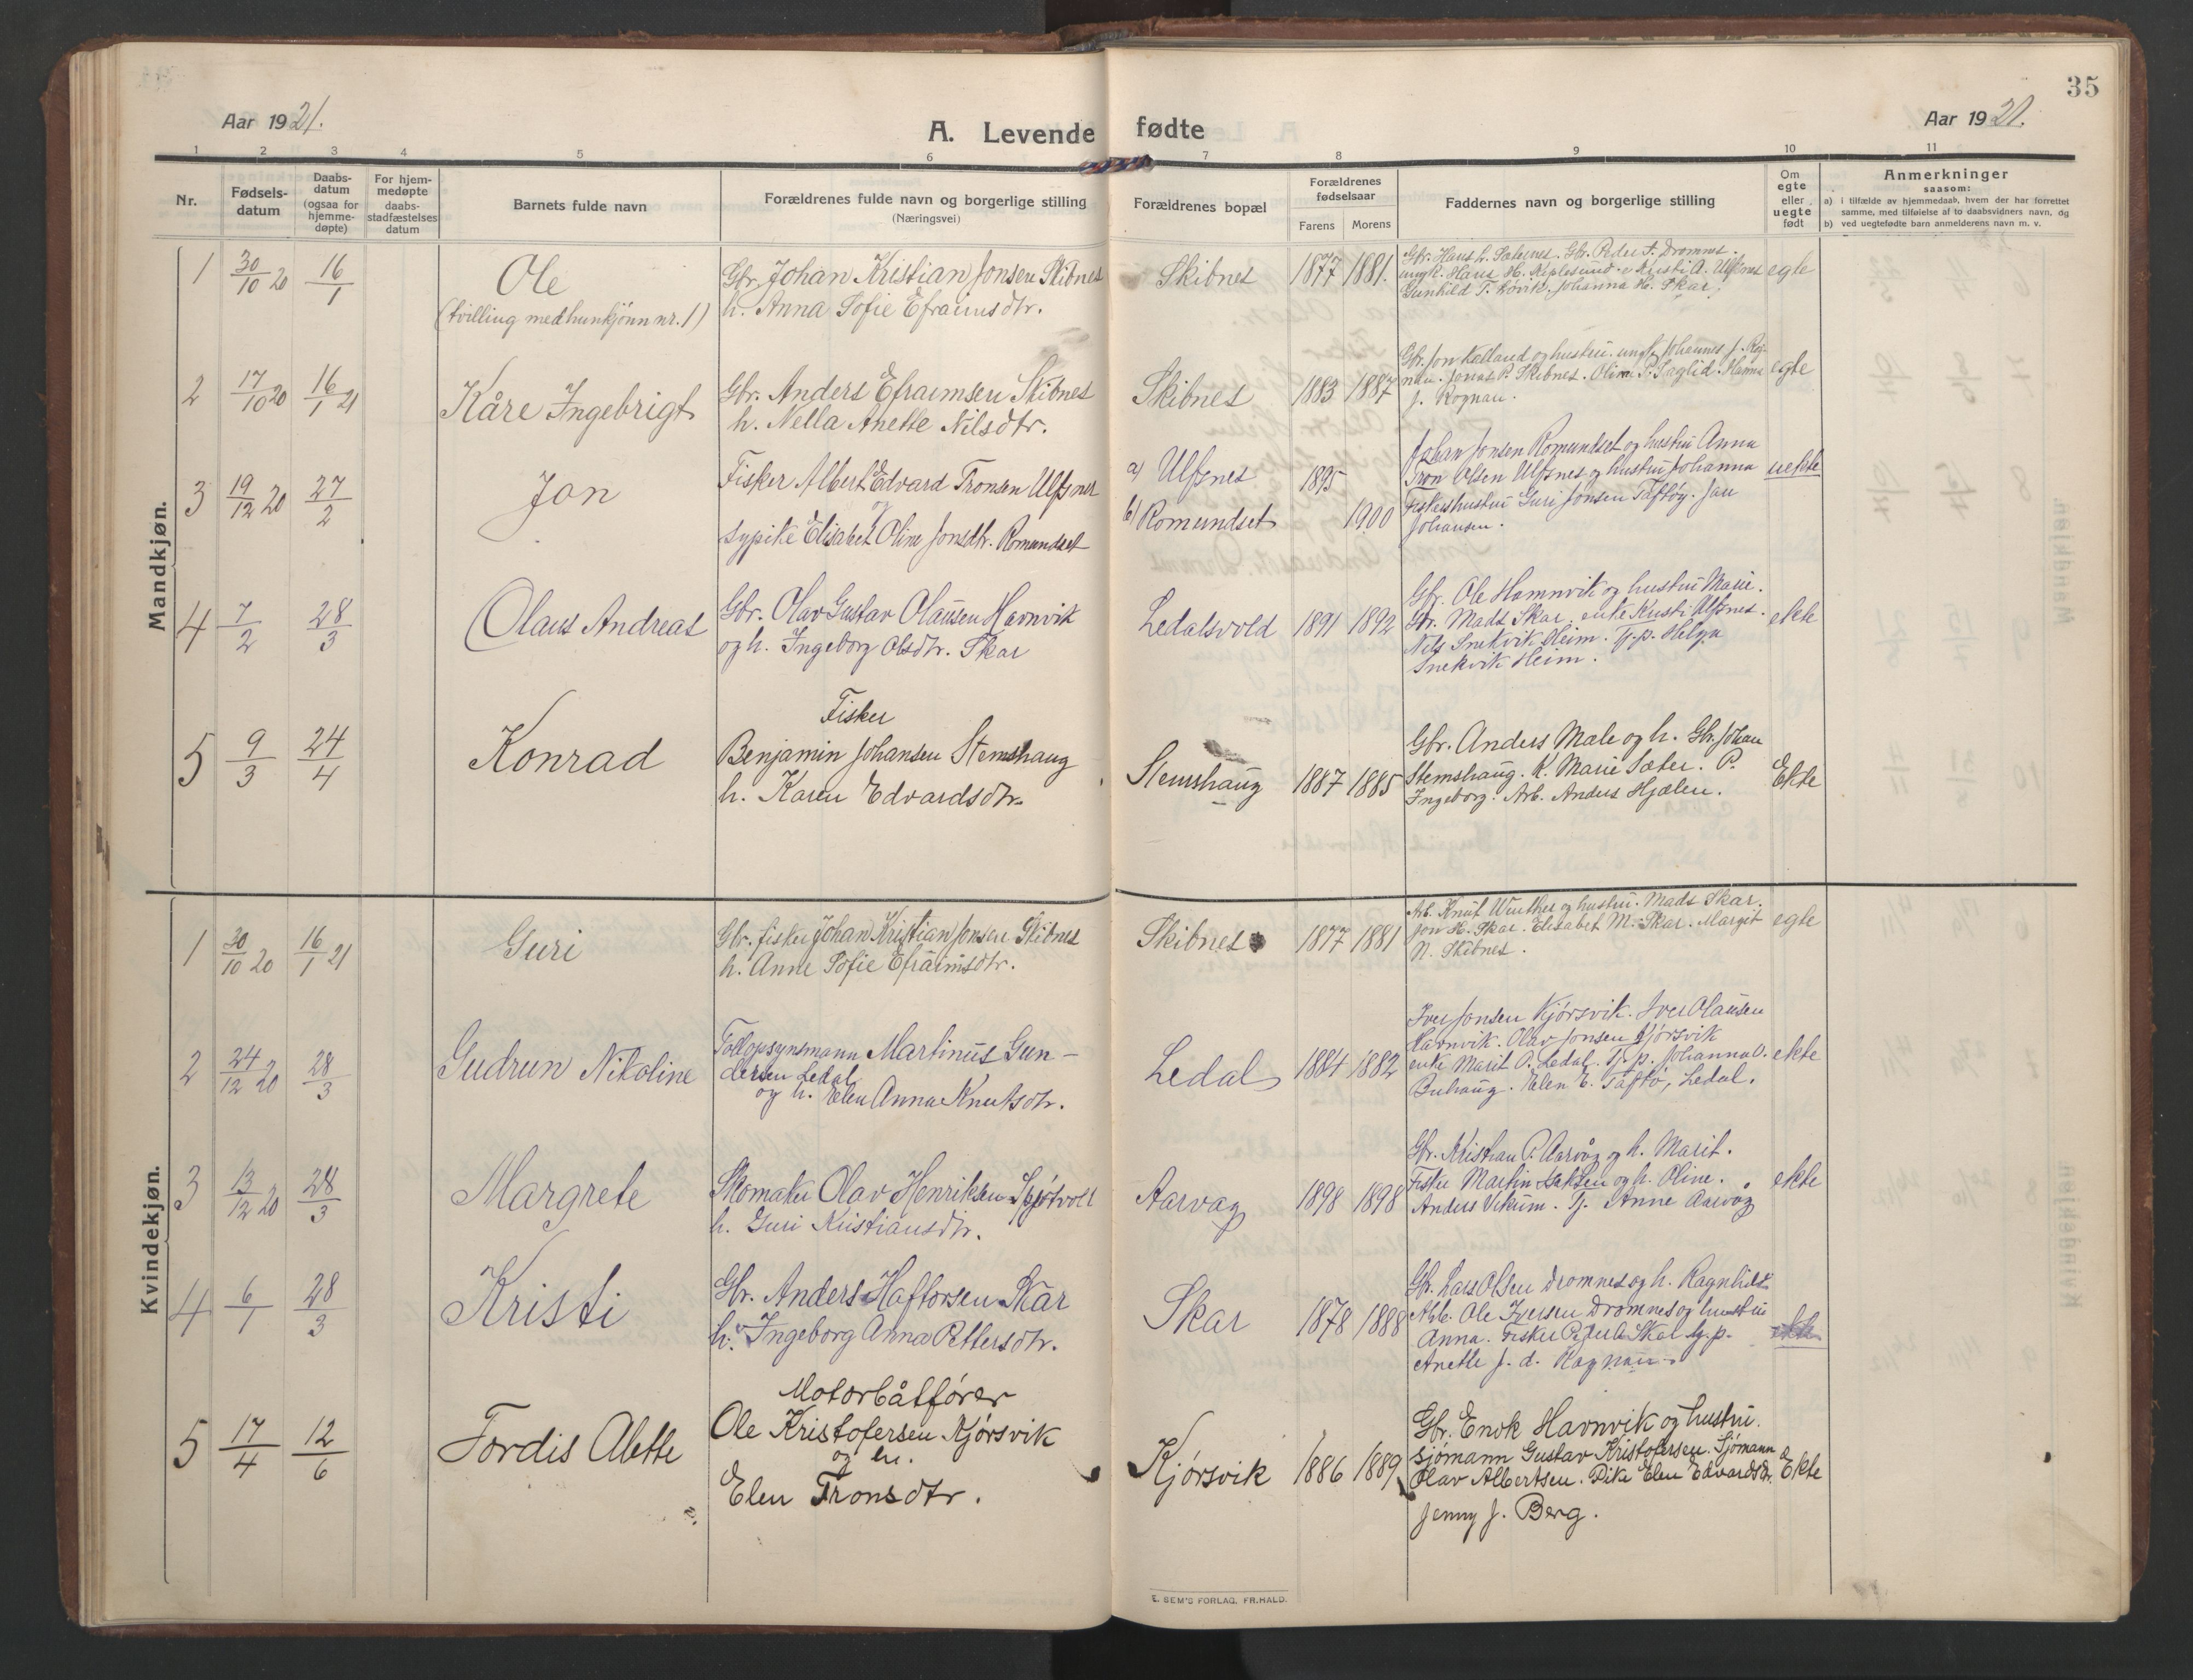 35
Aar 1921.
A. Levende fødte
Aar 1921.
1 2 3 4 5 6 7 8 9 10 11
Nr.
Fødsels-
datum
Daabs-
datum
(ogsaa for
hjemme-
døpte)
For hjem-
medøpte
daabs-
stadfæstelses
datum
Barnets fulde navn
Forældrenes fulde navn og borgerlige stilling
(Næringsvei)
Forældrenes bopæl
Forældrenes
fødselsaar
Farens Morens
Faddernes navn og borgerlige stilling
Om
egte
eller
uegte
født
Anmerkninger
saasom:
a) i tilfælde av hjemmedaab, hvem der har forrettet
samme, med tilføielse af to daabsvidners navn, og
b) ved uegtefødte barn anmelderens navn m. v.
Mandkjøn.
1 30/10 20 16/1
Ole
(tvilling med hunkjønn nr. 1)
Gbr. Johan Kristian Jonsen Skibnes
h. Anna Sofie Efraimsdtr.
Skibnes 1877 1881.
Gbr. Hans L. Gbr. Peder Dromnes.
ungk. Hans H. Kristi A. Ulfsnes
Gunhild T. Røvik. Johanna H. Skar.
egte
2 17/10 20 16/1 21
Kåre Ingebrigt
Gbr. Anders Efraimsen Skibnes
h. Nella Anette Nilsdtr.
Skibnes 1883 1887
Gbr. Jon og hustru. ungk. Johannes J. Rog-
nan. Jonas P. Skibnes. Oline P. Hanna
J. Rognan.
egte
3 19/12 20 27/2
Jon
Fisker Albert Edvard Tronsen Ulfsnes
og
sypike Elisabet Oline Jonsdtr. Romundset
a) Ulfsnes 1895
b) Romundset 1900
Johan Jonsen Romundset og hustru Anna
Tron Olsen Ulfsnes og hustru Johanna
Fiskerhustru Guri Jonsen Taftøy. Jan
Johansen.
uekte
4 7/2 28/3
Olaus Andreas
Gbr. Olav Gustav Olausen Havnvik
og h. Ingeborg Olsdtr. Skar
Ledalsvold 1891 1892
Gbr. Ole Hamnvik og hustru Marie.
Gbr. Mads Skar. enke Kristi Ulfsnes.
Nils Snekvik Heim. Tj.p. Helga
Snekvik Heim.
ekte
5 9/3 24/4
Konrad
Fisker
Benjamin Johansen Stemshaug
h. Karen Edvardsdtr.
Stemshaug 1887 1885
Gbr. Anders Male og h. Gbr. Johan
Stemshaug. K. Marie Sæter. P.
Ingeborg. Arb. Anders Hjælen.
Ekte
Kvindekjøn.
1 30/10 20 16/1 21
Guri
Gbr. fisker Johan Kristian Jonsen Skibnes
h. Anne Sofie Efraimsdtr.
Skibnes 1877 1881
Arb. Knut Winther og hustru. Mads Skar.
Jon H. Skar. Elisabet M. Skar. Margit
N. Skibnes.
egte
2 24/12 20 28/3
Gudrun Nikoline
Tollopsynsmann Martinus Gun-
dersen Ledal
og h. Elen Anna Knutsdtr.
Ledal 1884 1882
Iver Jonsen Kjørsvik. Iver Olausen
Havnvik. Olav Jonsen Kjørsvik
enke Marit O. Ledal. Tj.p. Johanna O.
Buhaug. Elen E. Taftø, Ledal.
ekte
3 13/12 20 28/3
Margrete
Skomaker Olav Henriksen Skjøtvoll
h. Guri Kristiansdtr.
Aarvag 1898 1898
Gbr. Kristian P. Aarvåg og h. Marit.
Fisker Martin Isaksen og h. Oline.
Anders Vikum. Tj. Anne Aarvåg
ekte
4 6/1 28/3
Kristi
Gbr. Anders Haftorsen Skar
h. Ingeborg Anna Pettersdtr.
Skar 1878 1888
Gbr. Lars Olsen Dromnes og h. Ragnhild
Arb. Ole Iversen Dromnes og hustru
Anna. Fisker Peder Skar tj.p.
Anette J. d. Rognan
ekte
5 17/4 12/6
Tordis Alette
Motorbåtfører
Ole Kristofersen Kjørsvik
og h.
Elen Tronsdtr.
Kjørsvik 1886 1889
Gbr. Enok Havnvik og hustru.
Sjømann Gustav Kristofersen. Sjømann
Olav Albertsen. Pike Elen Edvardsdtr.
Jenny J. Berg.
Ekte
E. SEM'S FORLAG, FR.HALD.